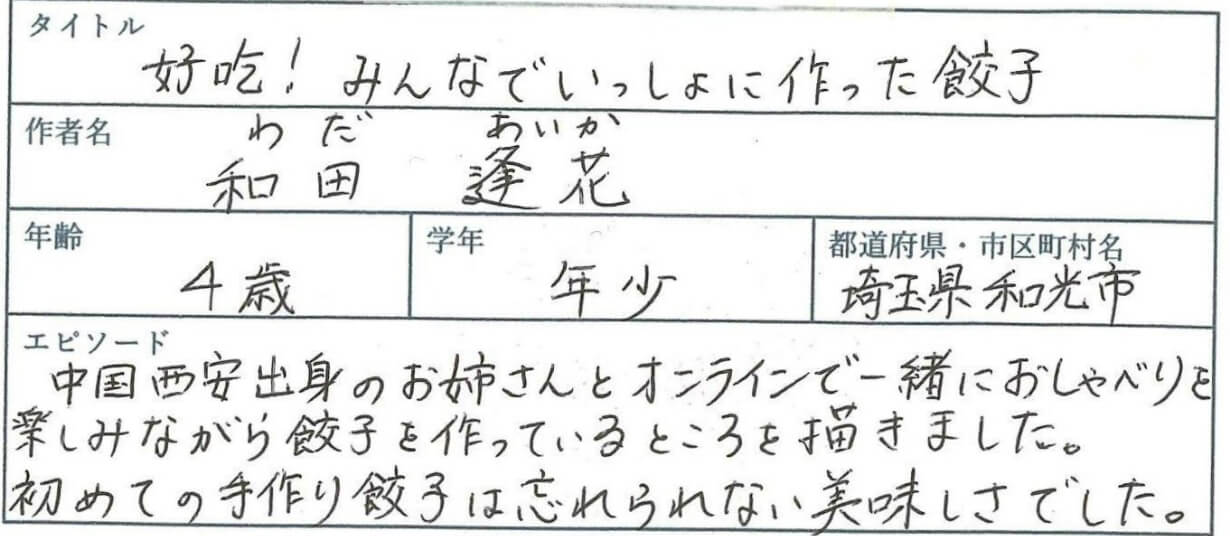 タイトル
好吃！みんなでいっしょに作った餃子
作者名
わだ あいか
和田 逢花
年齢
4歳
学年
年少
都道府県・市区町村名
埼玉県和光市
エピソード
中国西安出身のお姉さんとオンラインで一緒におしゃべりを
楽しみながら餃子を作っているところを描きました。
初めての手作り餃子は忘れられない美味しさでした。